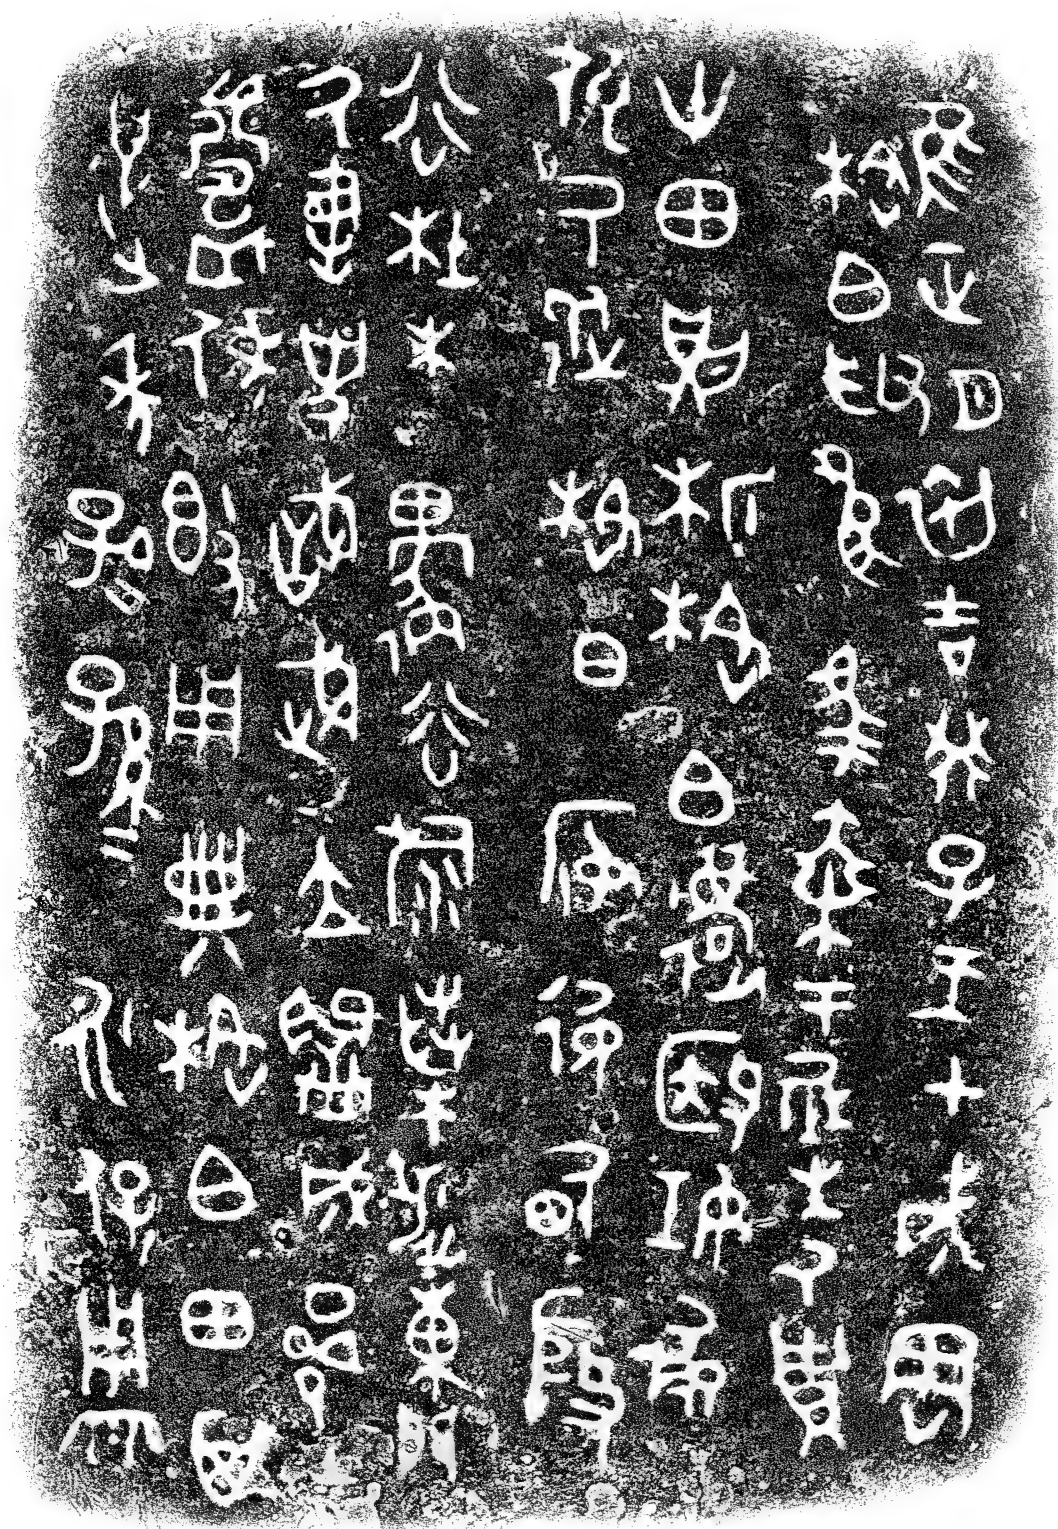 隹正月初吉癸子王才成周
格白取良馬乘于倗生厥貯
卅田則析格白還殹妊及
佤厥從格白安彶甸殷
谷杜木谷旅桑涉東門
厥書史戠武立成壨
鑄保簋用典格白田其
邁年子子孫孫永保用周